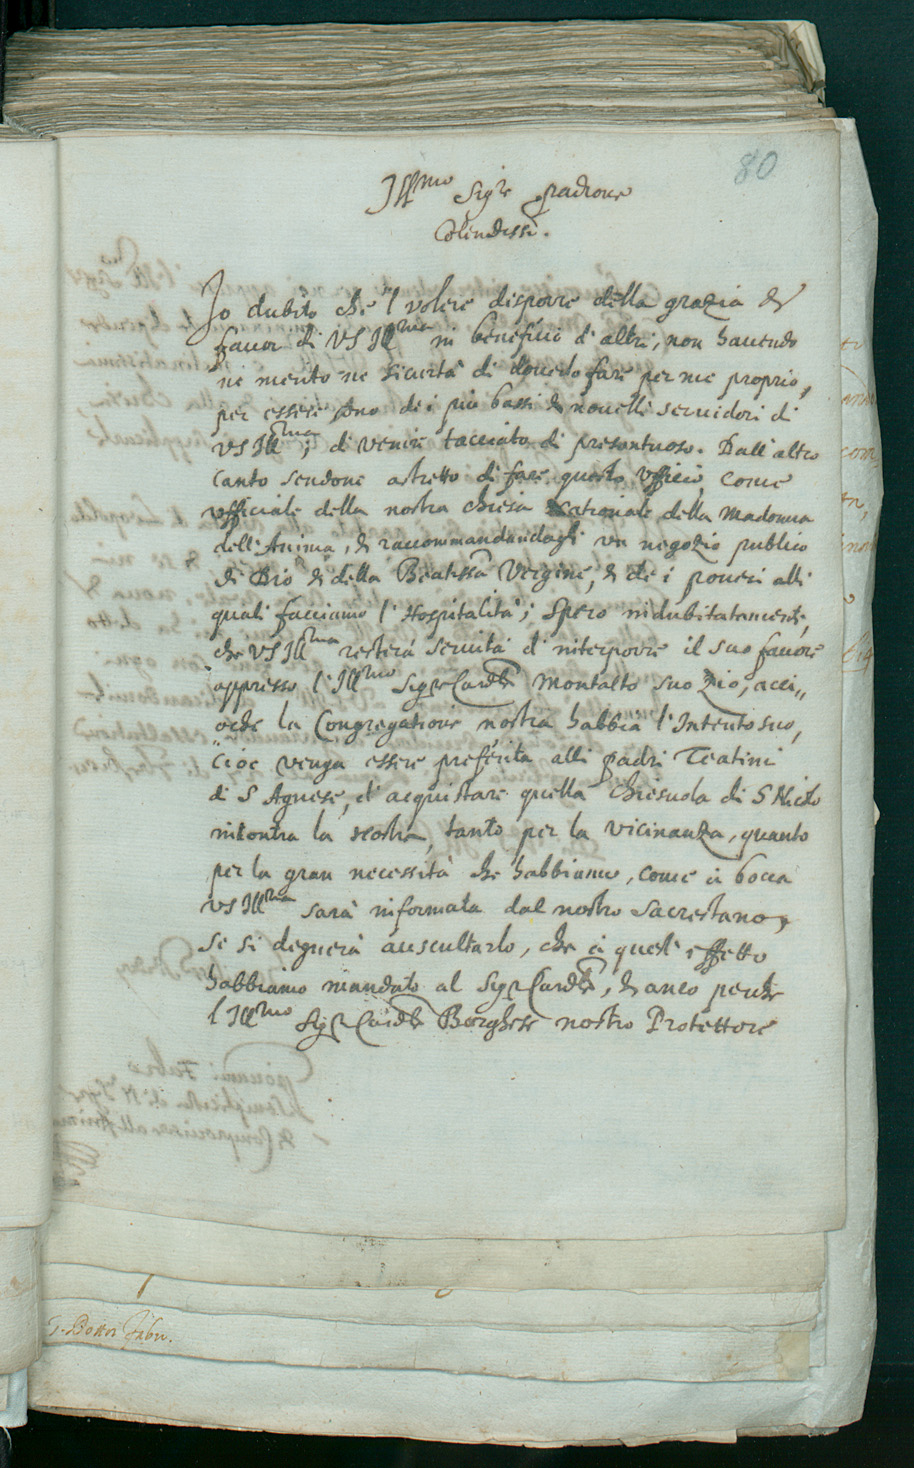 80
Ill.mo Sig.re Padrone
Colendiss.
Io dubito che 'l volere disporre della grazia &
favori di VS Ill.ma in benefitii d'altri, non havendo
ne merito ne sicurtà di doverlo fare per me proprio,
per essere uno de i piu bassi & novelli servidori di
VS Ill.ma, di venire tacciato di presontuoso. Dall'altro
canto sendone astretto di fare questo Ufficio, come
ufficiale della nostra chiesa nationale della Madonna
dell'Anima, & raccommandandogli un negozio publico
di Dio & della Beatissa Vergine, & de i poveri alli
quali facciamo l'Hospitalità; Spero indubitatamente,
che VS Ill.ma resterà servita d'interporre il suo favore
appresso l'Ill.mo Sig.r Card.le Montalto suo Zio, acci„
„oche la Congregatione nostra habbia l'Intento suo,
cioe venga essere preferita alli Padri Teatini
di S Agnese, d'acquistare quella Chiesuola di S Nicolo
incontra la nostra, tanto per la vicinanza, quanto
per la gran necessità che habbiamo, come à bocca
VS Ill.ma sarà informata dal nostro Sacrestano,
se si degnerà auscultarlo, che à quest'effetto
habbiamo mandato al Sig.r Card.le, & anco perche
l'Ill.mo Sig.r Card.le Borghese nostro Protettore